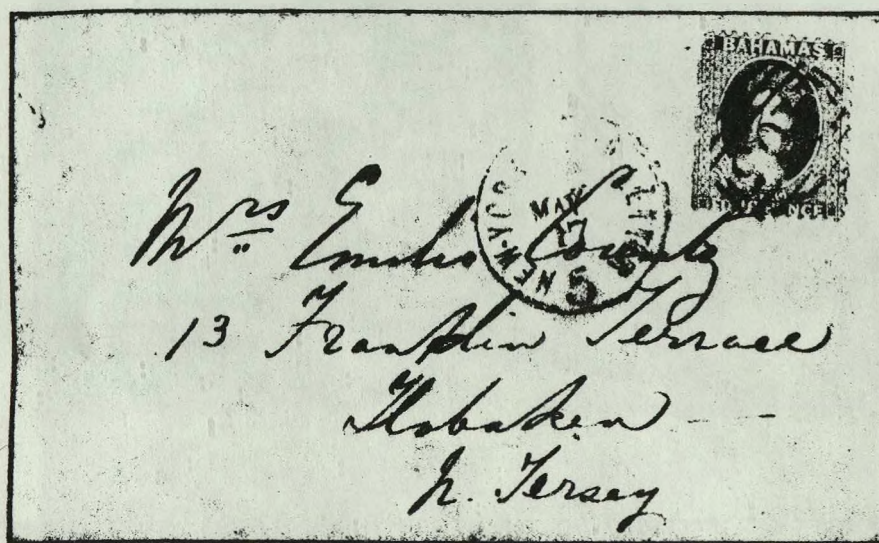 BAHAMAS
FOURPENCE
NEW-YOR
MAY
17
5
Mrs Emilio
13 Franklin Terrace
Hoboken
N. Jersey